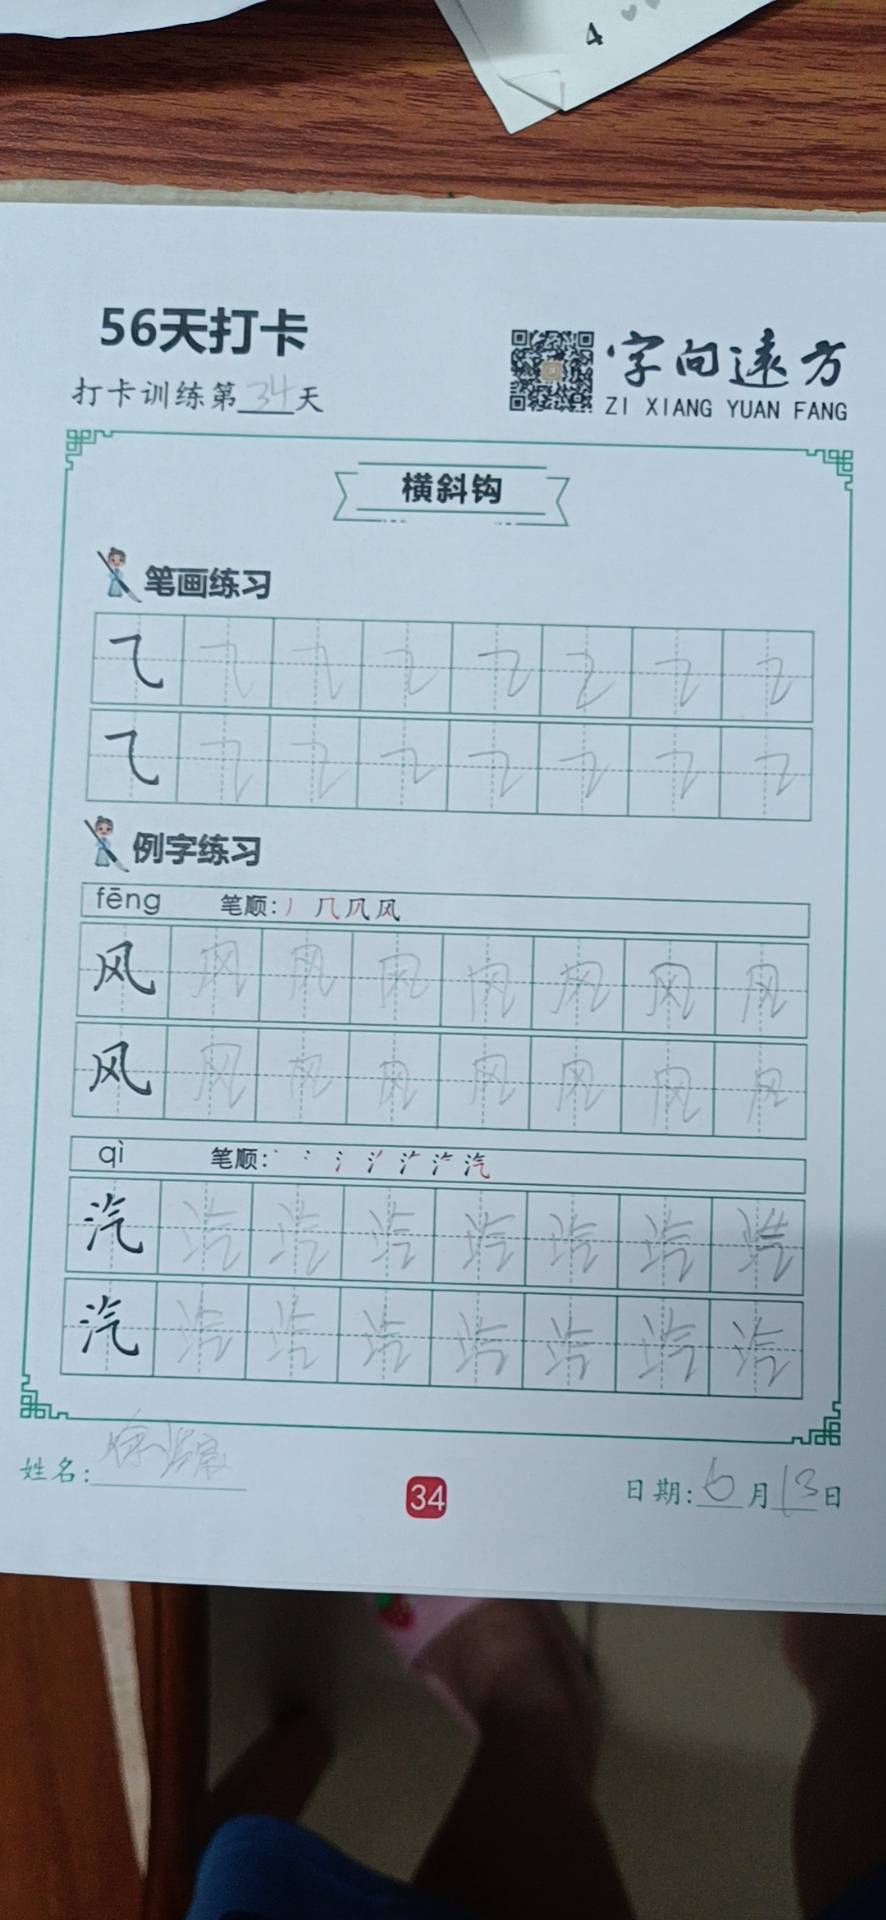 4
56天打卡
打卡训练第34天
字向遠方
ZI XIANG YUAN FANG
横斜钩
笔画练习
⺄ ⺄ ⺄ ⺄ ⺄ ⺄ ⺄ ⺄
⺄ ⺄ ⺄ ⺄ ⺄ ⺄ ⺄ ⺄
例字练习
fēng 笔顺:
风 风 风 风 风 风 风 风
风 风 风 风 风 风 风 风
qì 笔顺:
汽 汽 汽 汽 汽 汽 汽 汽
汽 汽 汽 汽 汽 汽 汽 汽
姓名:
34
日期:6月13日